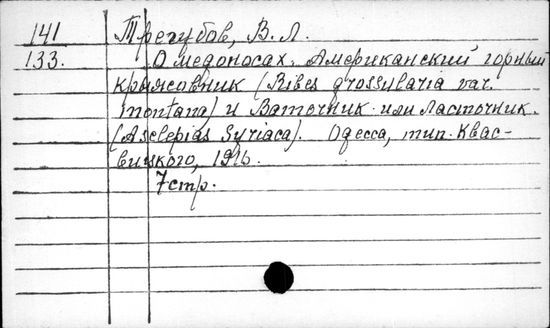 141 Трегубов, В. Л.
133. О медоносах. Американский горный
крыжовник (Ribes grossularia var.
montana) и Ваточник или Ласточник.
(Asclepias Syriaca). Одесса, тип. Квас-
вицкого, 1916.
7 стр.